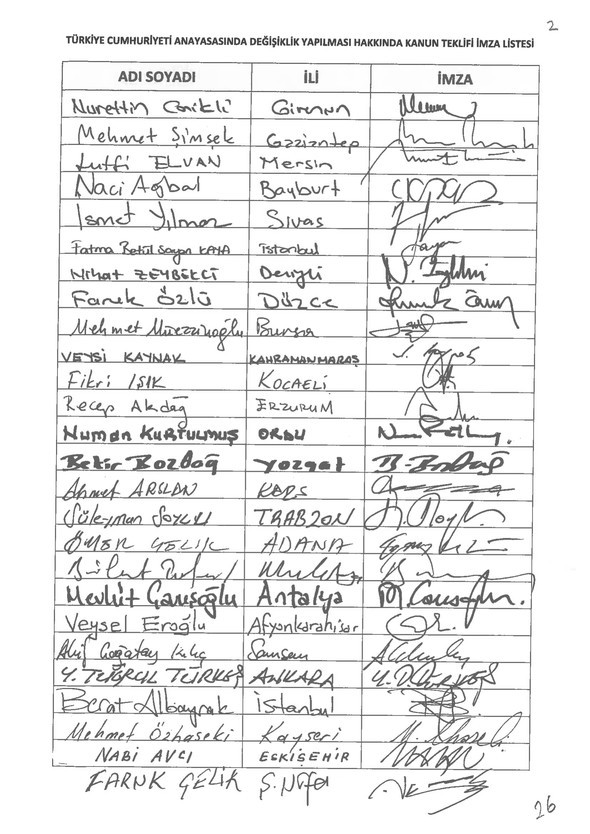 2
TÜRKİYE CUMHURİYETİ ANAYASASINDA DEĞİŞİKLİK YAPILMASI HAKKINDA KANUN TEKLİFİ İMZA LİSTESİ
ADI SOYADI İLİ İMZA
Nurettin Canikli Giresun
Mehmet Şimşek Gaziantep
Lutfi ELVAN Mersin
Naci Ağbal Bayburt
Ismet Yılmaz Sivas
Fatma Betül Sayan KAYA istanbul
Nihat ZEYBEKCİ Denizli N.
Faruk Özlü Düzce
Mehmet Müezzinoğlu Bursa
VEYSİ KAYNAK KAHRAMANMARAŞ
Fikri IŞIK KOCAELİ
Recep Akdağ ERZURUM
Numan KURTULMUŞ ORDU
Bekir Bozdağ Yozgat B. Bozdağ
Ahmet ARSLAN KARS
Süleyman Soylu TRABZON
ÖMER ÇELİK ADANA
Mevlüt Çavuşoğlu Antalya M. Çavuşoğlu
Veysel Eroğlu Afyonkarahisar
Akif Çağatay Kılıç Samsun
Y. TUĞRUL TÜRKEŞ ANKARA
Berat Albayrak istanbul
Mehmet Özhaseki Kayseri
NABİ AVCI ESKİŞEHİR
FARUK ÇELİK Ş.Urfa
26